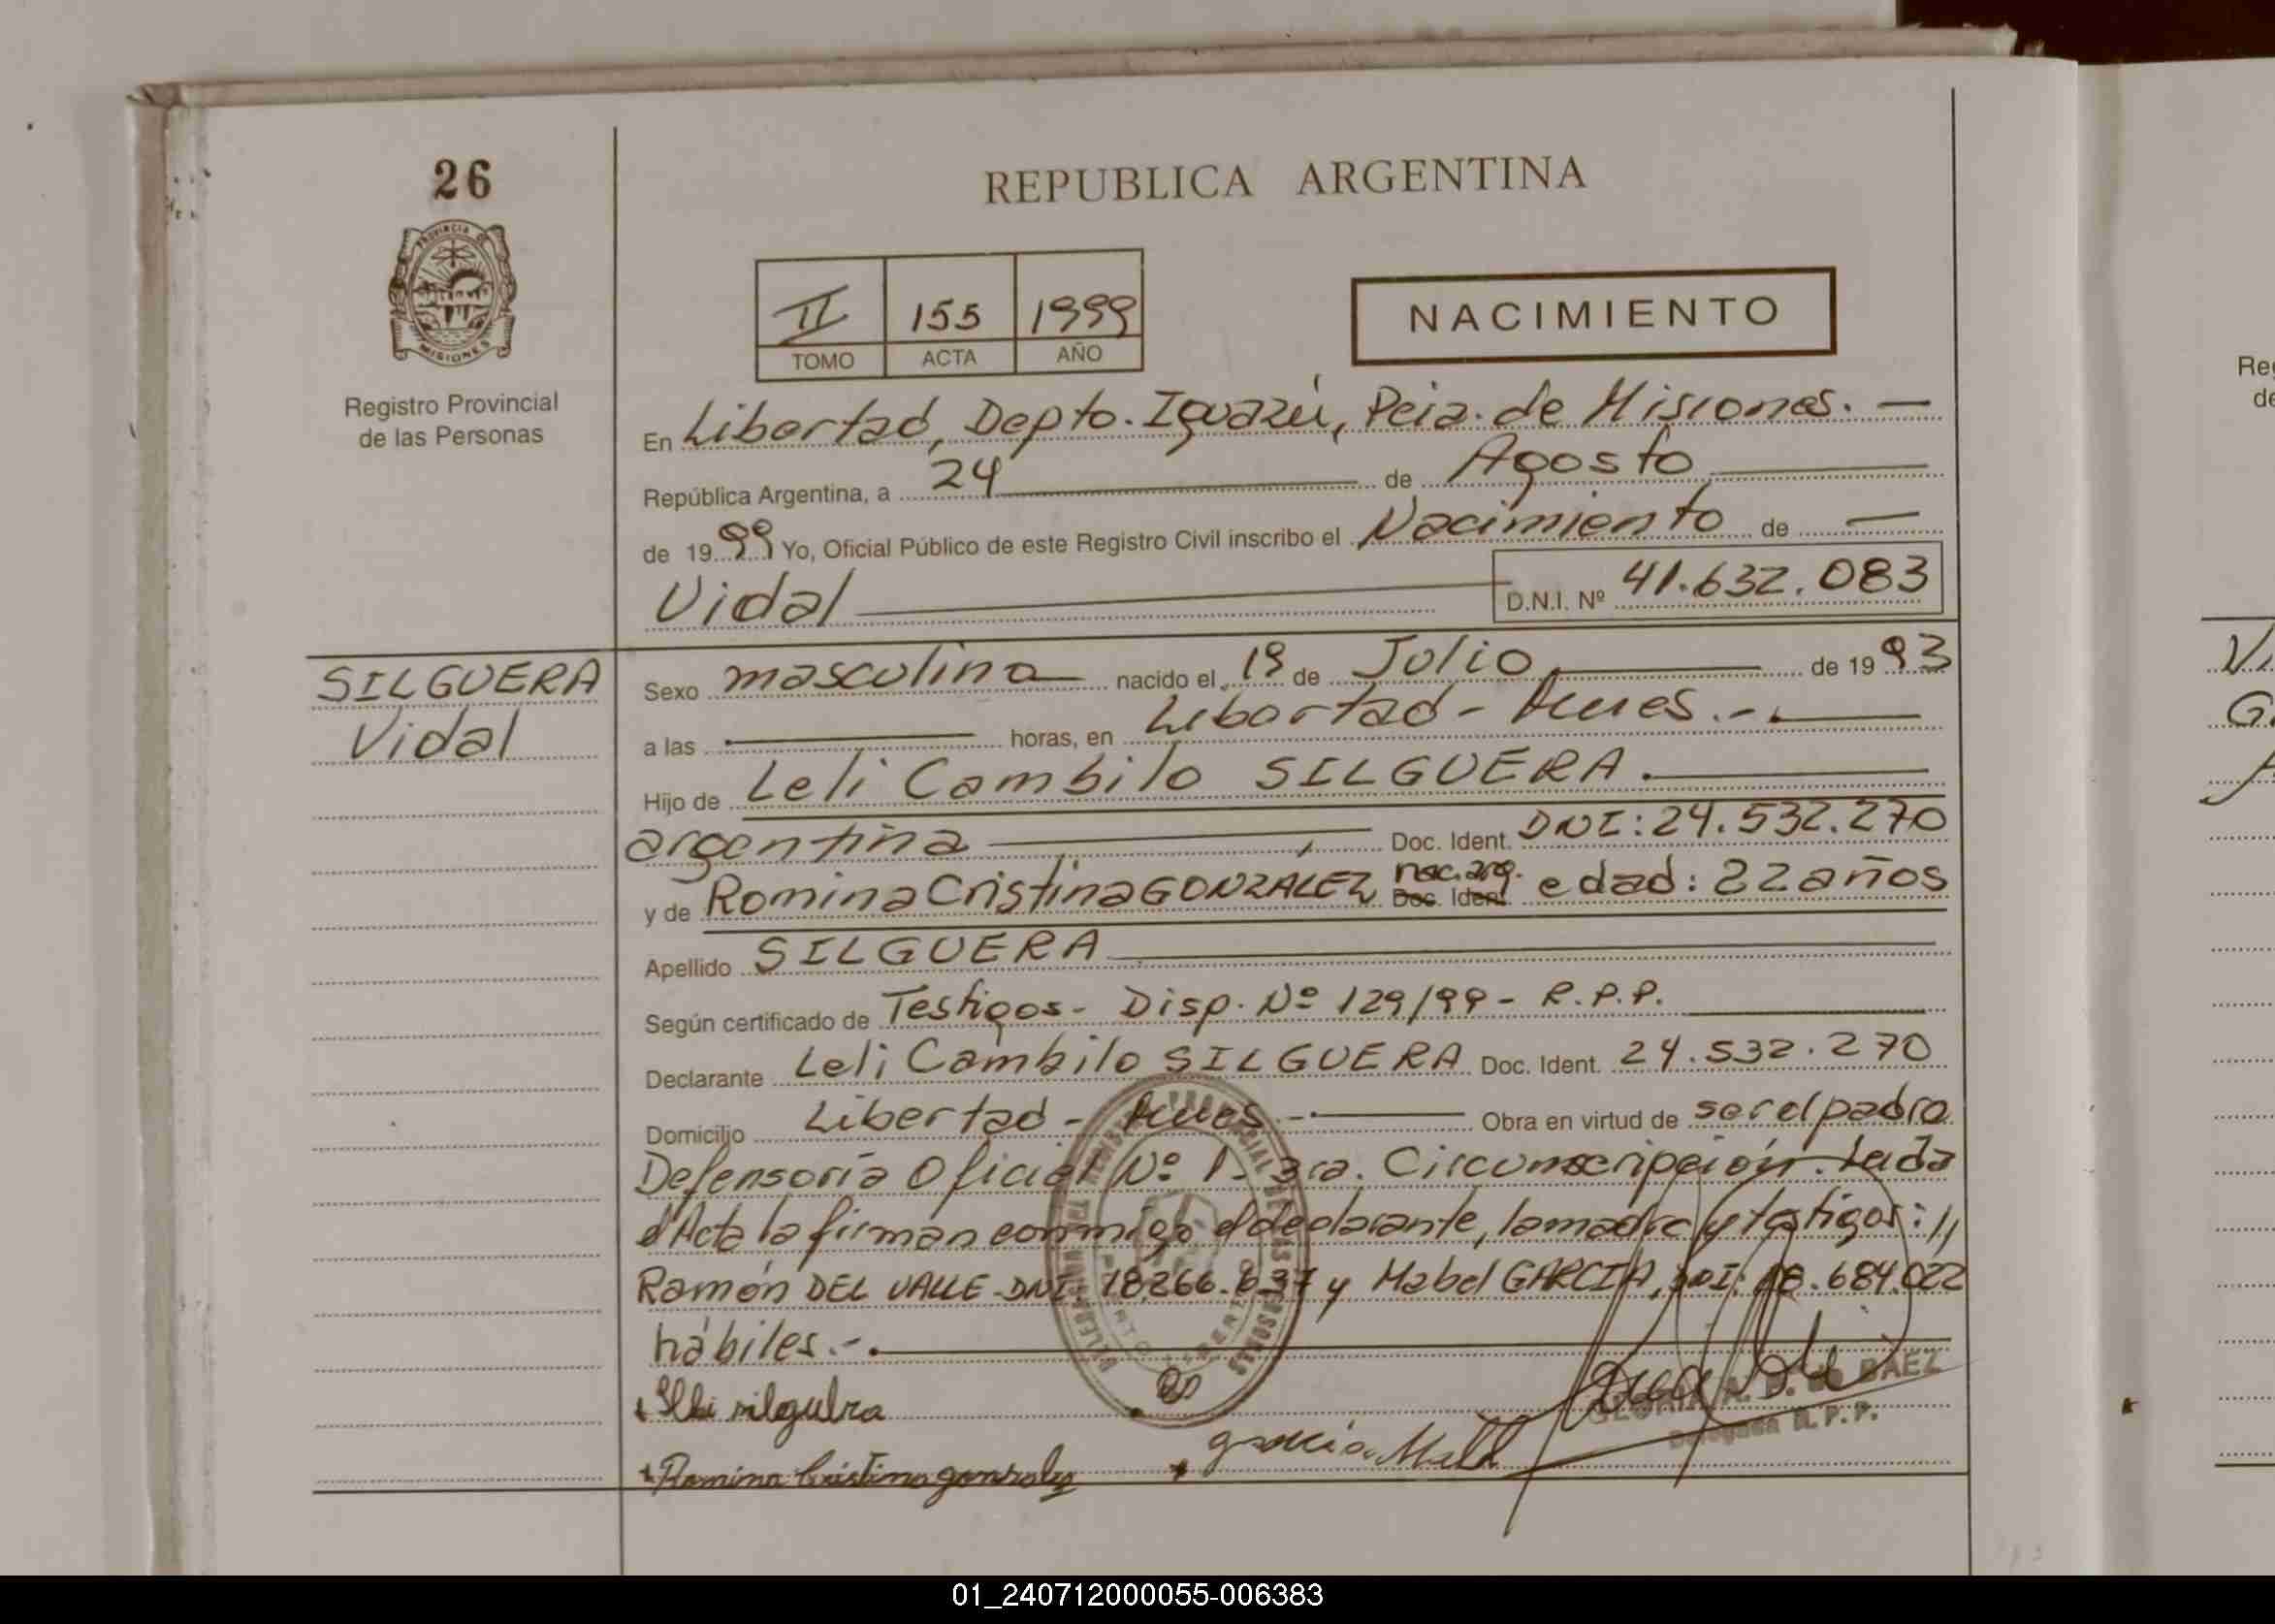 26
REPUBLICA ARGENTINA
PROVINCIA DE
MISIONES
II 155 1999
TOMO ACTA AÑO
NACIMIENTO
Registro Provincial
de las Personas
En Libertad, Depto. Iguazú, Pcia. de Misiones. —
República Argentina, a 24 de Agosto
de 1999 Yo, Oficial Público de este Registro Civil inscribo el Nacimiento de —
Vidal D.N.I. Nº 41.632.083
SILGUERA
Vidal
Sexo masculino nacido el 19 de Julio de 1993
a las horas, en Libertad - Mnes.-
Hijo de Leli Cambilo SILGUERA.
argentina Doc. Ident. DNI: 24.532.270
y de Romina Cristina GONZALEZ nac. arg. Doc. Ident. edad: 22 años
Apellido SILGUERA
Según certificado de Testigos - Disp. Nº 129/99 - R.P.P.
Declarante Leli Cambilo SILGUERA Doc. Ident. 24.532.270
Domicilio Libertad - Mnes.- Obra en virtud de ser el padre
Defensoría Oficial Nº 1 - 3ra. Circunscripción. Leída
el Acta la firman conmigo el declarante, la madre y testigos:
Ramón DEL VALLE - DNI 18.266.637 y Mabel GARCIA, DNI: 18.684.022
hábiles.-
silguera
Romina Cristina gonzalez
garcia
BAEZ
R.P.P.
Reg
de
01_240712000055-006383